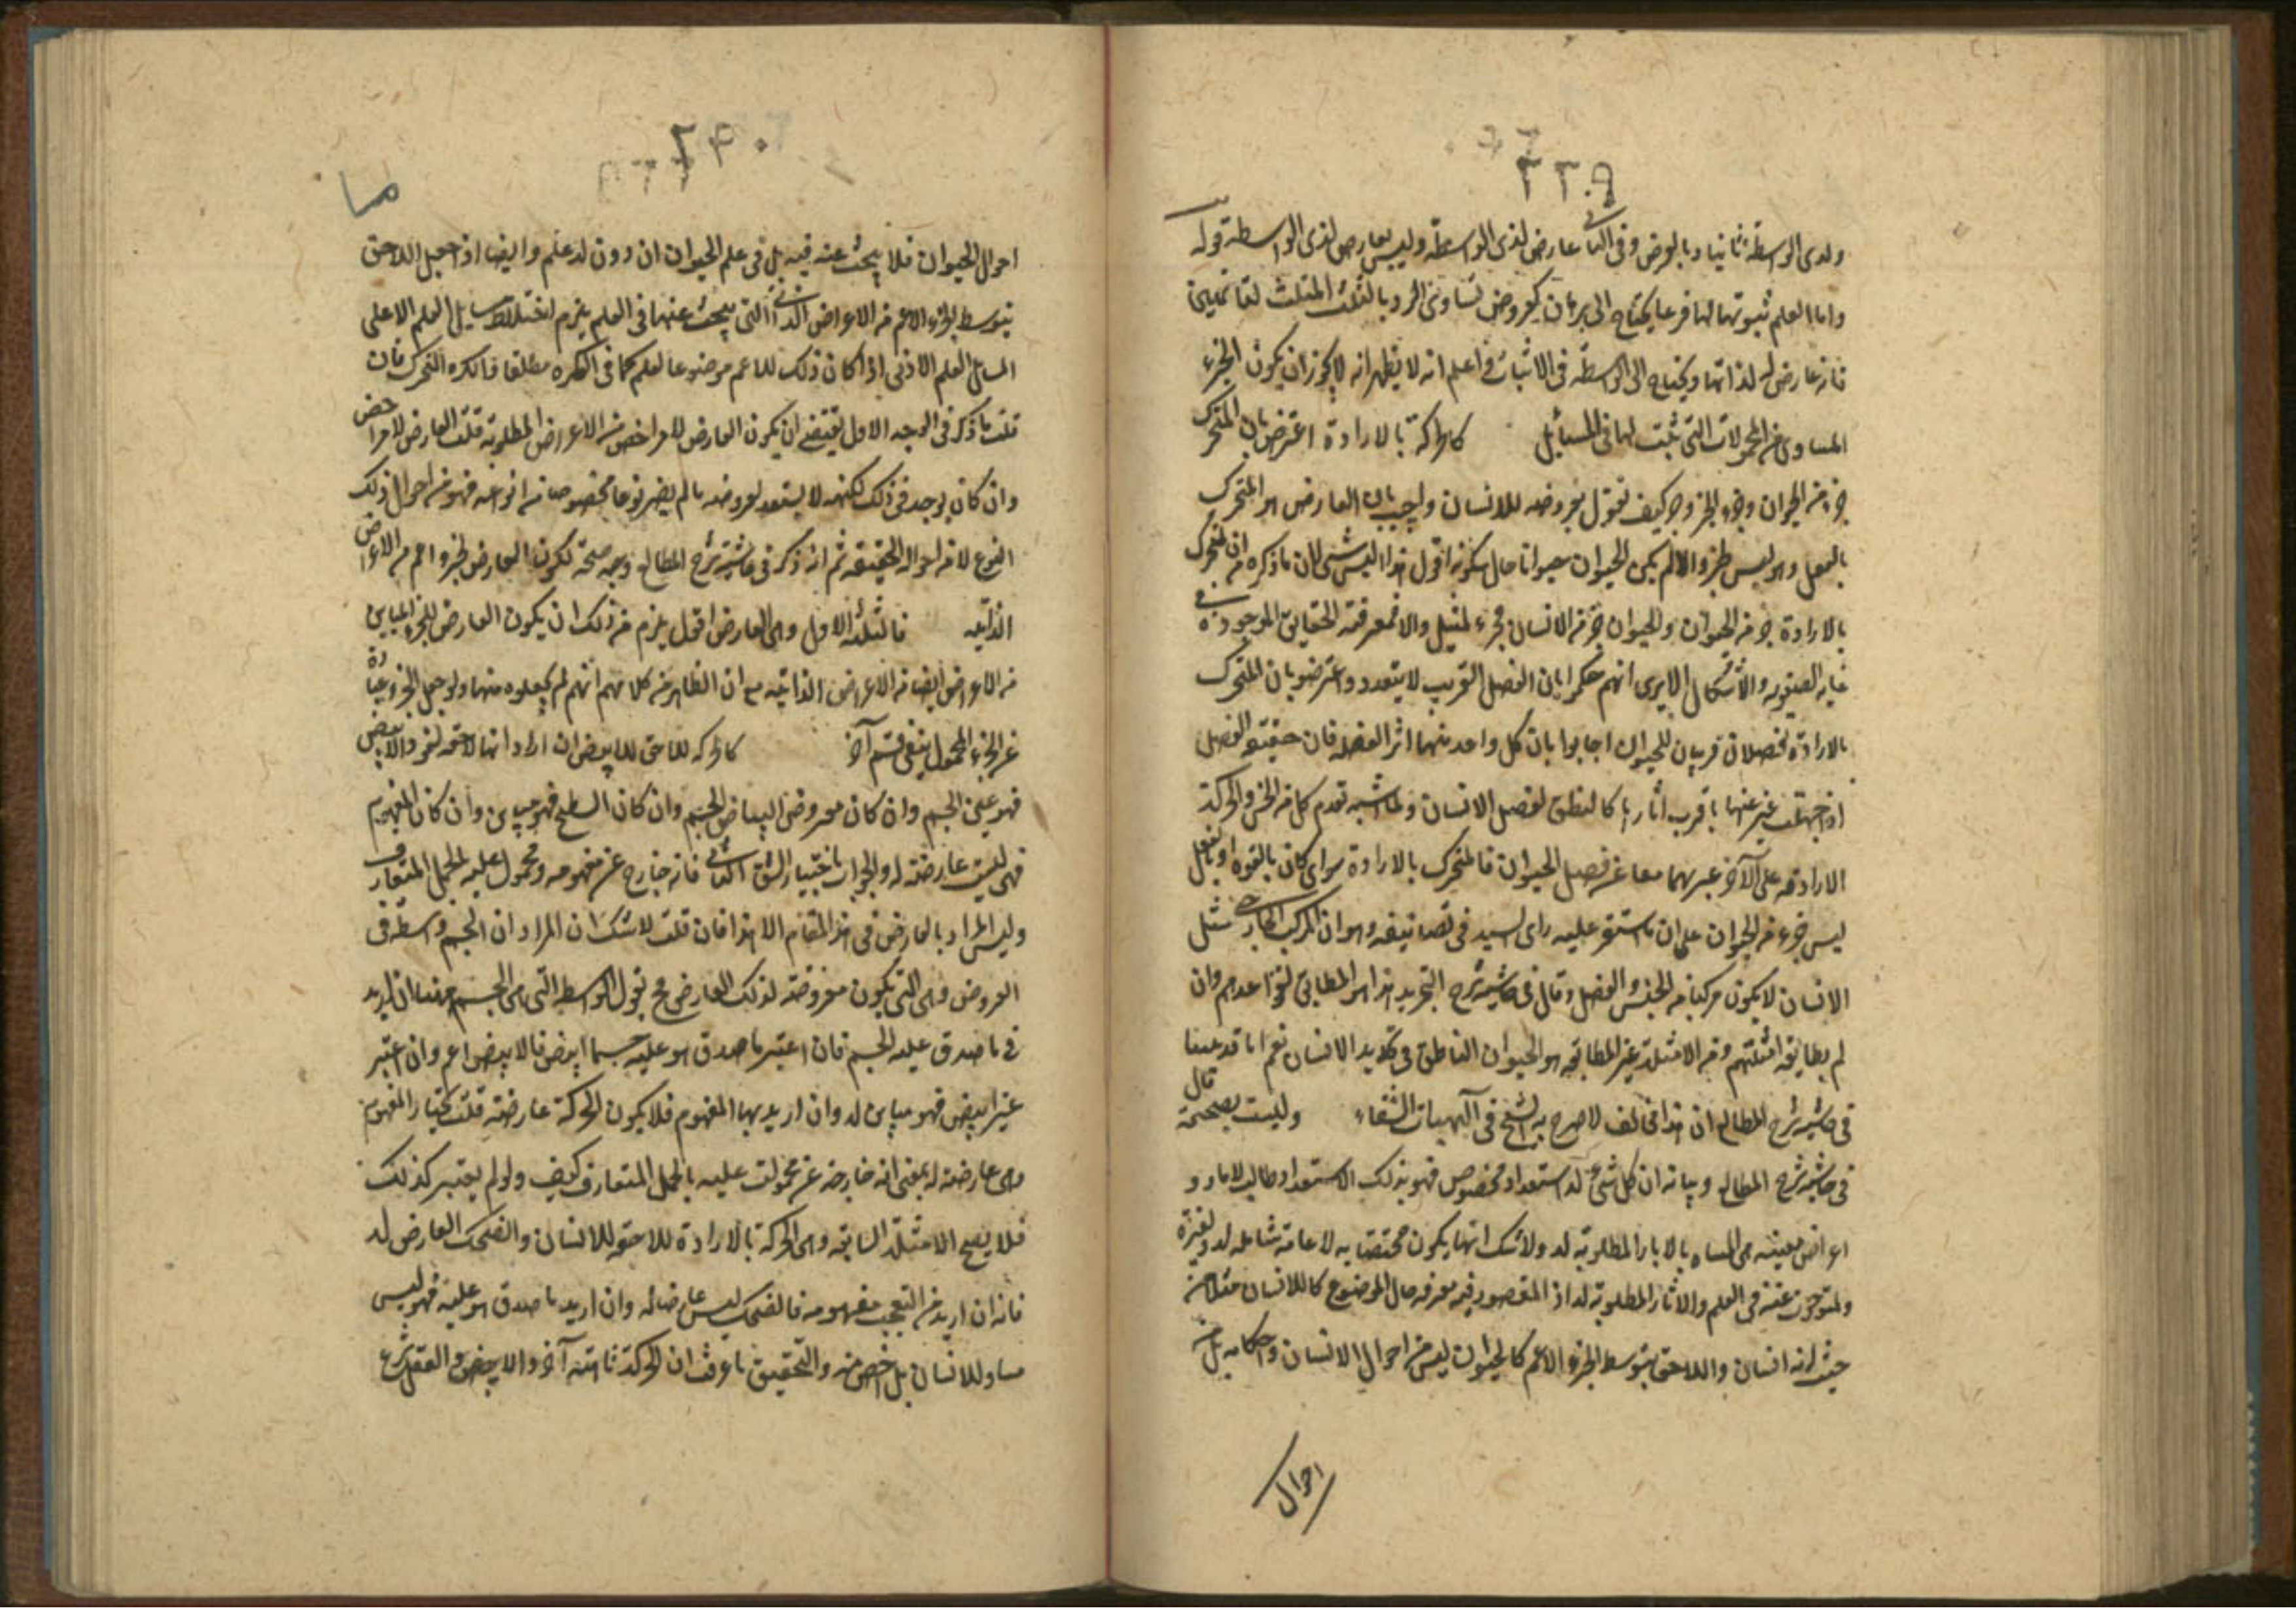 ولذى الواسطة ثانيا وبالعرض وفى الثانى عارض لذى الواسطة وليس بعارض لذى الواسطة قوله
واما العلم ثبوتها لها فرعا يحتاج الى برهان كعروض تساوى الزوايا الثلث المثلث لقائمتين
فانه عارض له لذاتها ويحتاج الى الواسطة فى الاثبات واعلم انه لا يظهر انه لا يجوز ان يكون الجزء
المساوى من المحمولات التى تثبت لها فى المسائل كالحركة بالارادة اعترض بان المتحرك
جزء من الحيوان وجزء الجزء جزء كيف نقول بعروضه للانسان واجيب بان العارض هو المتحرك
بالفعل وهو ليس جزء والا لم يكن الحيوان حيوانا حال سكونه اقول هذا ليس بشىء لان ما ذكره من ان المتحرك
بالارادة جزء من الحيوان والحيوان جزء من الانسان مجرد تمثيل والا فمعرفة الحقايق الموجودة فى
غاية الصعوبة والاشكال الا يرى انهم حكموا بان الفصل القريب لا يتعدد واعترضوا بان المتحرك
بالارادة فصلان قريبان للحيوان اجابوا بان كل واحد منهما اثر الفصل فان حقيقة الفصل
اذا جهلت عبر عنها باقرب آثارها كالنطق لفصل الانسان ولما اشتبه تقدم كل من الحس والحركة
الارادية على الآخر عبر بهما معا عن فصل الحيوان فالمتحرك بالارادة سواء كان بالقوة او بالفعل
ليس جزء من الحيوان على ان ما استقر عليه راى السيد فى تصانيفه وهو ان المركب الخارجى مثل
الانسان لا يكون مركبا من الجنس والفصل وقال فى حاشية شرح التجريد هذا هو المطابق لقواعدهم وان
لم يطابقه امثلتهم ومن الامثلة غير المطابقة هو الحيوان الناطق فى تحديد الانسان نعم
قال
فى حاشية شرح المطالع ان هذا مخالف لما صرح به الشيخ فى آلهيات الشفاء وليست بصحيحة
فى حاشية شرح المطالع وبيانه ان كل شىء له استعداد مخصوص فهو بذلك الاستعداد طالب
اعراض معينة هى المسماة بالآثار المطلوبة له ولا شك انها يكون مختصة به لا عامة شاملة له ولغيره
والمبحوث عنه فى العلم والآثار المطلوبة له اذ المقصود فيه معرفة حال الموضوع كالانسان مثلا من
حيث انه انسان واللاحق بتوسط الجزء الاعم كالحيوان ليس من احوال الانسان واحكامه بل من
احوال
٢٩٠
احوال الحيوان فلا يبحث عنه فيه بل فى علم الحيوان ان دون له علم وايضا اذا جعل اللاحق
بتوسط الجزء الاعم من الاعراض الذاتية التى يبحث عنها فى العلم يلزم اختلاط مسايل العلم الاعلى
المسائل العلم الادنى اذا كان ذلك للاعم موضوعا لعلم كما فى الكرة مطلقا والكرة المتحرك فان
قلت ما ذكر فى الوجه الاول يقتضى ان يكون العارض لامر اخص من الاعراض المطلوبة قلت العارض لامر اخص
وان كان يوجد فى ذلك لكنه لا يستعد لعروضه ما لم يصر نوعا مخصوصا من انواعه فهو من احوال ذلك
النوع لا من احواله الحقيقة ثم انه ذكر فى حاشية شرح المطالع وجه صحة لكون العارض لجزء اعم من الاعراض
الذاتية فالثلثة الاول وهى العارض اقول يلزم من ذلك ان يكون العارض للجزء المباين
من الاعراض ايضا من الاعراض الذاتية مع ان الظاهر من كلامهم انهم لم يجعلوه منها ولو جعل الجزء عبارة
عن الجزء المحمول ينتفى قسم آخر كالحركة للاحق للابيض ان اراد انها لاحقة لنفس والابيض
فهو عين الجسم وان كان معروض البياض الجسم وان كان السطح فهو مباين وان كان المفهوم
فهى ليست عارضة له والجواب باختيار الشق الثانى فانه خارج عن مفهومه ومحمول عليه بالحمل المتعارف
وليس المراد بالعارض فى هذا المقام الا هذا فان قلت لا شك ان المراد ان الجسم واسطة فى
العروض وهى التى يكون معروضة لذلك العارض فح نقول الواسطة التى هى الجسم ههنا ان اريد
به ما صدق عليه الجسم فان اعتبر ما صدق هو عليه جسما ابيض فالابيض اعم وان اعتبر
غير ابيض فهو مباين له وان اريد بها المفهوم فلا يكون الحركة عارضة قلت نختار المفهوم
وهى عارضة له بمعنى انه خارجة عن محمولة عليه بالحمل المتعارف كيف ولو لم يعتبر كذلك
فلا يصح الامثلة السابقة وهى الحركة بالارادة اللاحقة للانسان والضحك العارض له
فانه ان اريد من التعجب مفهومه فالضحك ليس عارضا له وان اريد ما صدق هو عليه فهو ليس
مساو للانسان بل اخص منه والتحقيق ما عرفت ان الحركة ثابتة آخر والابيض والعقل